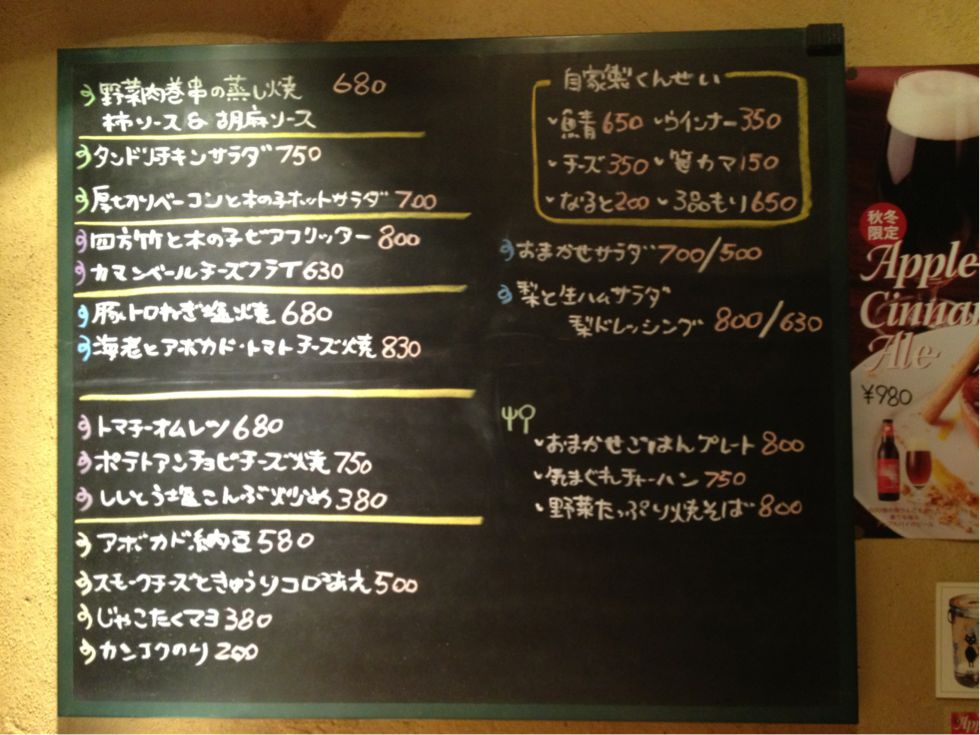 野菜肉巻串の蒸し焼 680
柿ソース & 胡麻ソース
タンドリチキンサラダ 750
厚切りベーコンと木の子ホットサラダ 700
四方竹と木の子ビアフリッター 800
カマンベールチーズフライ 630
豚トロねぎ塩焼 680
海老とアボカド・トマトチーズ焼 830
トマチーオムレツ 680
ポテトアンチョビチーズ焼 750
ししとう塩こんぶ炒め 380
アボカド納豆 580
スモークチーズときゅうりコロあえ 500
じゃこたくマヨ 380
カンコクのり 200
自家製くんせい
鯖 650 ウインナー 350
チーズ 350 笹カマ 150
なると 200 3品もり 650
おまかせサラダ 700/500
梨と生ハムサラダ
梨ドレッシング 800/630
おまかせごはんプレート 800
気まぐれチャーハン 750
野菜たっぷり焼そば 800
秋冬
限定
Apple
Cinna
Ale
¥980